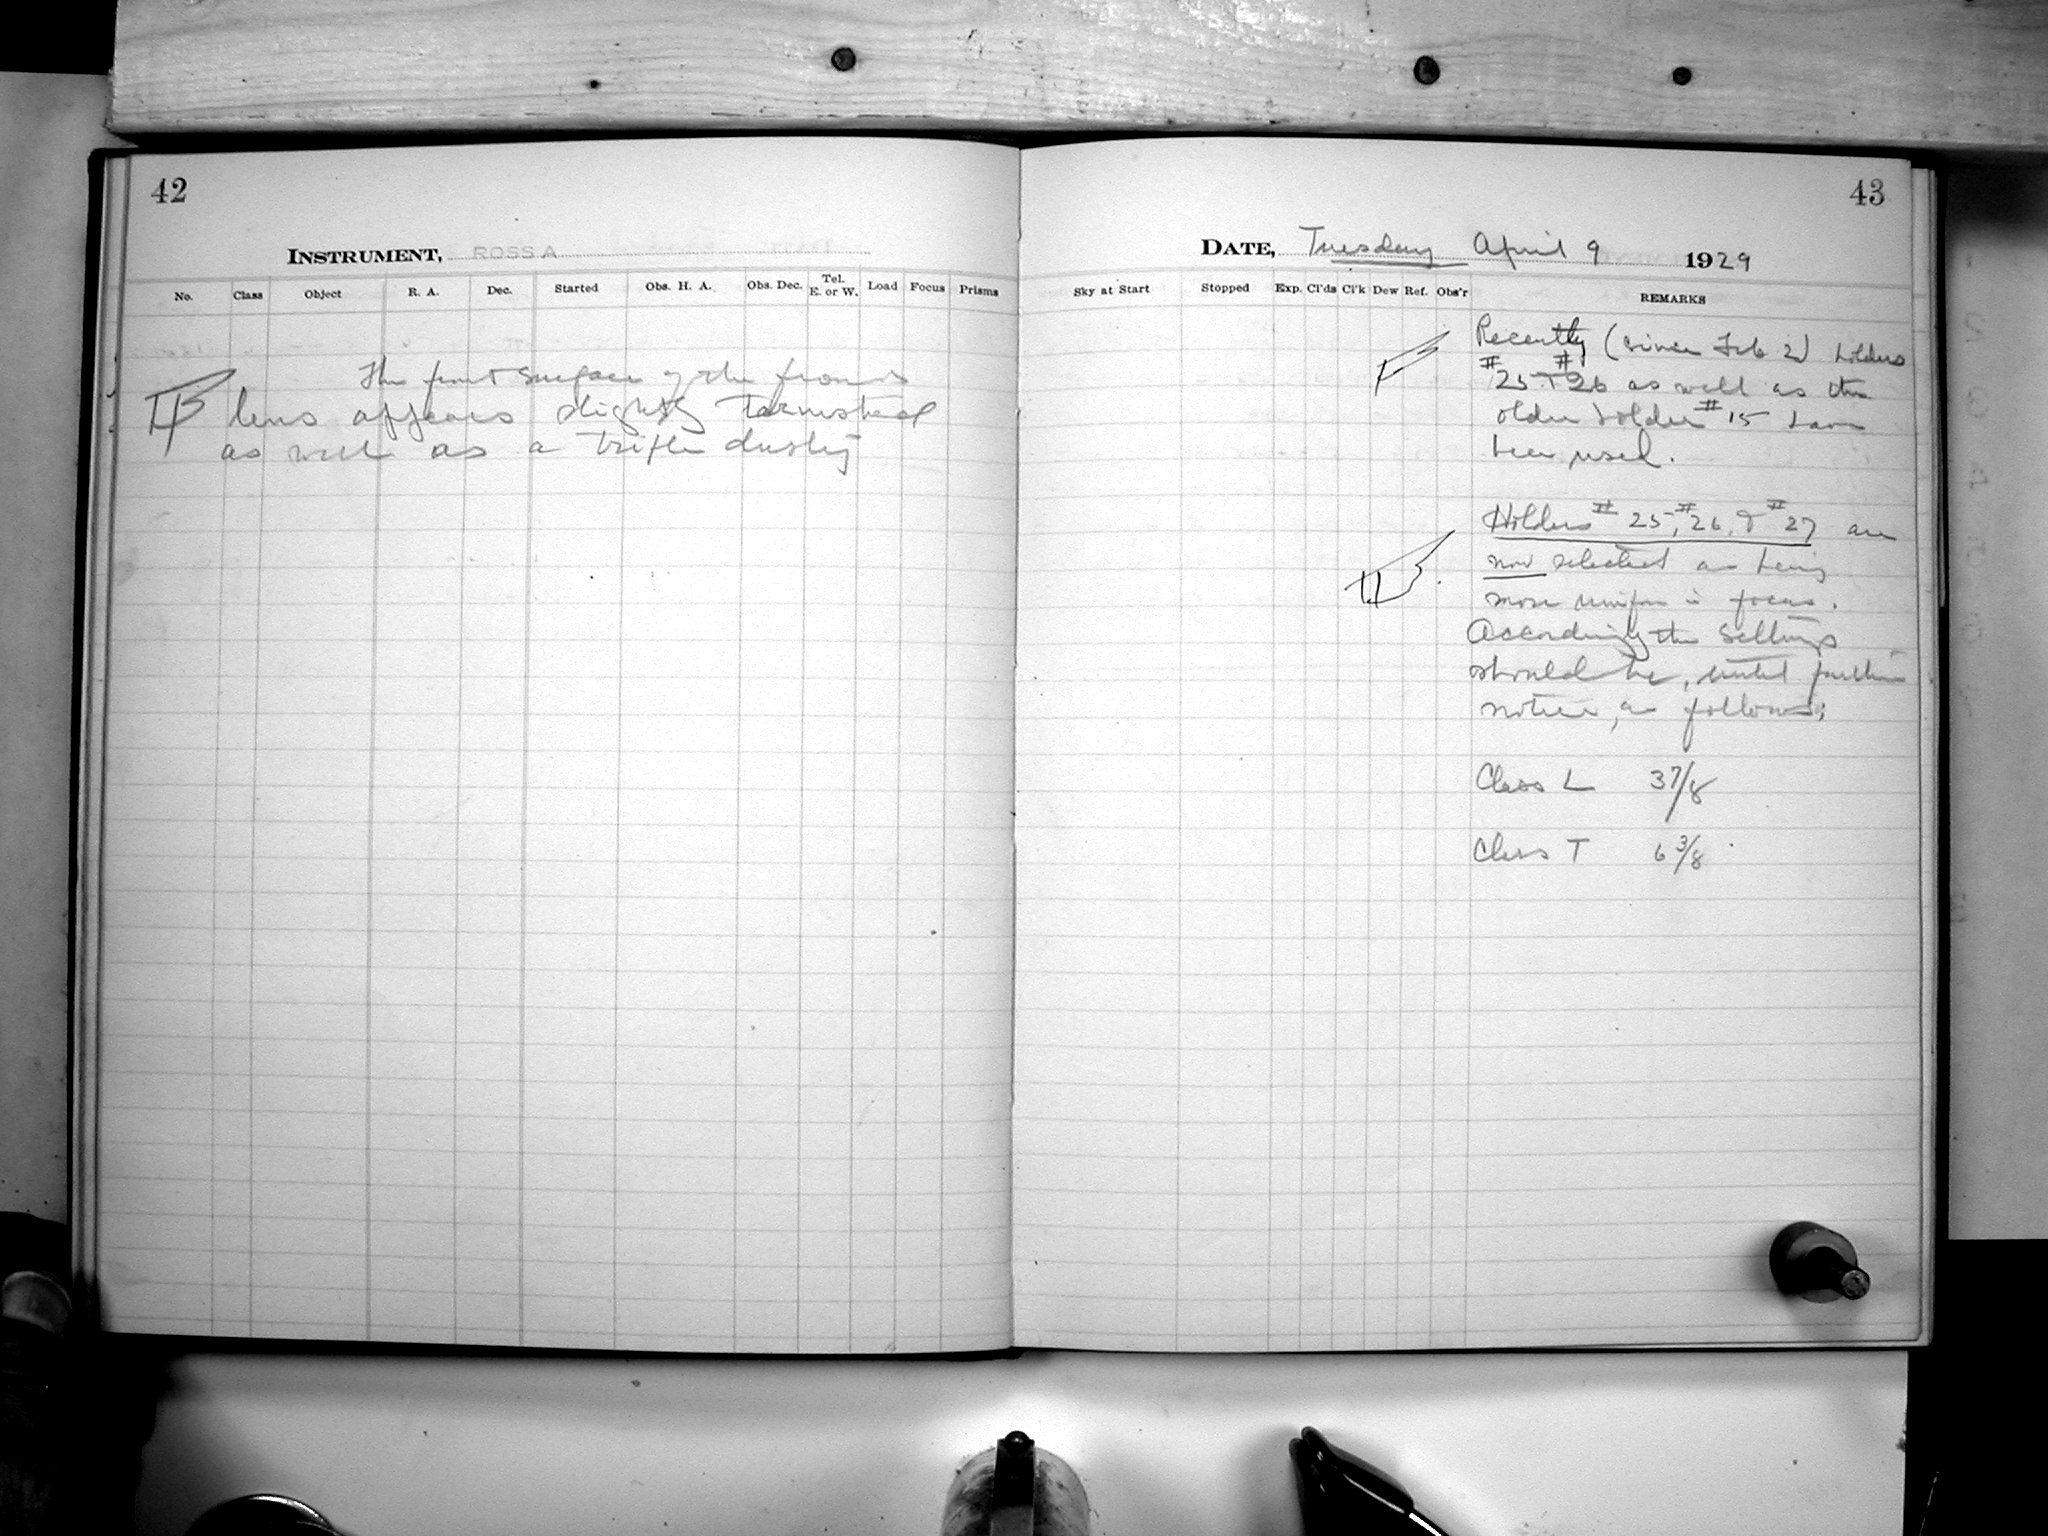 42
INSTRUMENT, ROSS A
No. Class Object R. A. Dec. Started Obs. H. A. Obs. Dec. Tel. E. or W. Load Focus Prisms
The front surface of the front
lens appears slightly tarnished
as well as a trifle dusty
43
DATE, Tuesday April 9 1929
Sky at Start Stopped Exp. Cl'ds Cl'k Dew Ref. Obs'r REMARKS
Recently (since Feb 2) holders
#25 + #26 as well as the
older holder #15 have
been used.
Holders #25, #26, + #27 are
now selected as being
more uniform in focus.
Accordingly the settings
should be, until further
notice, as follows;
Class L 3 7/8
Class T 6 3/8